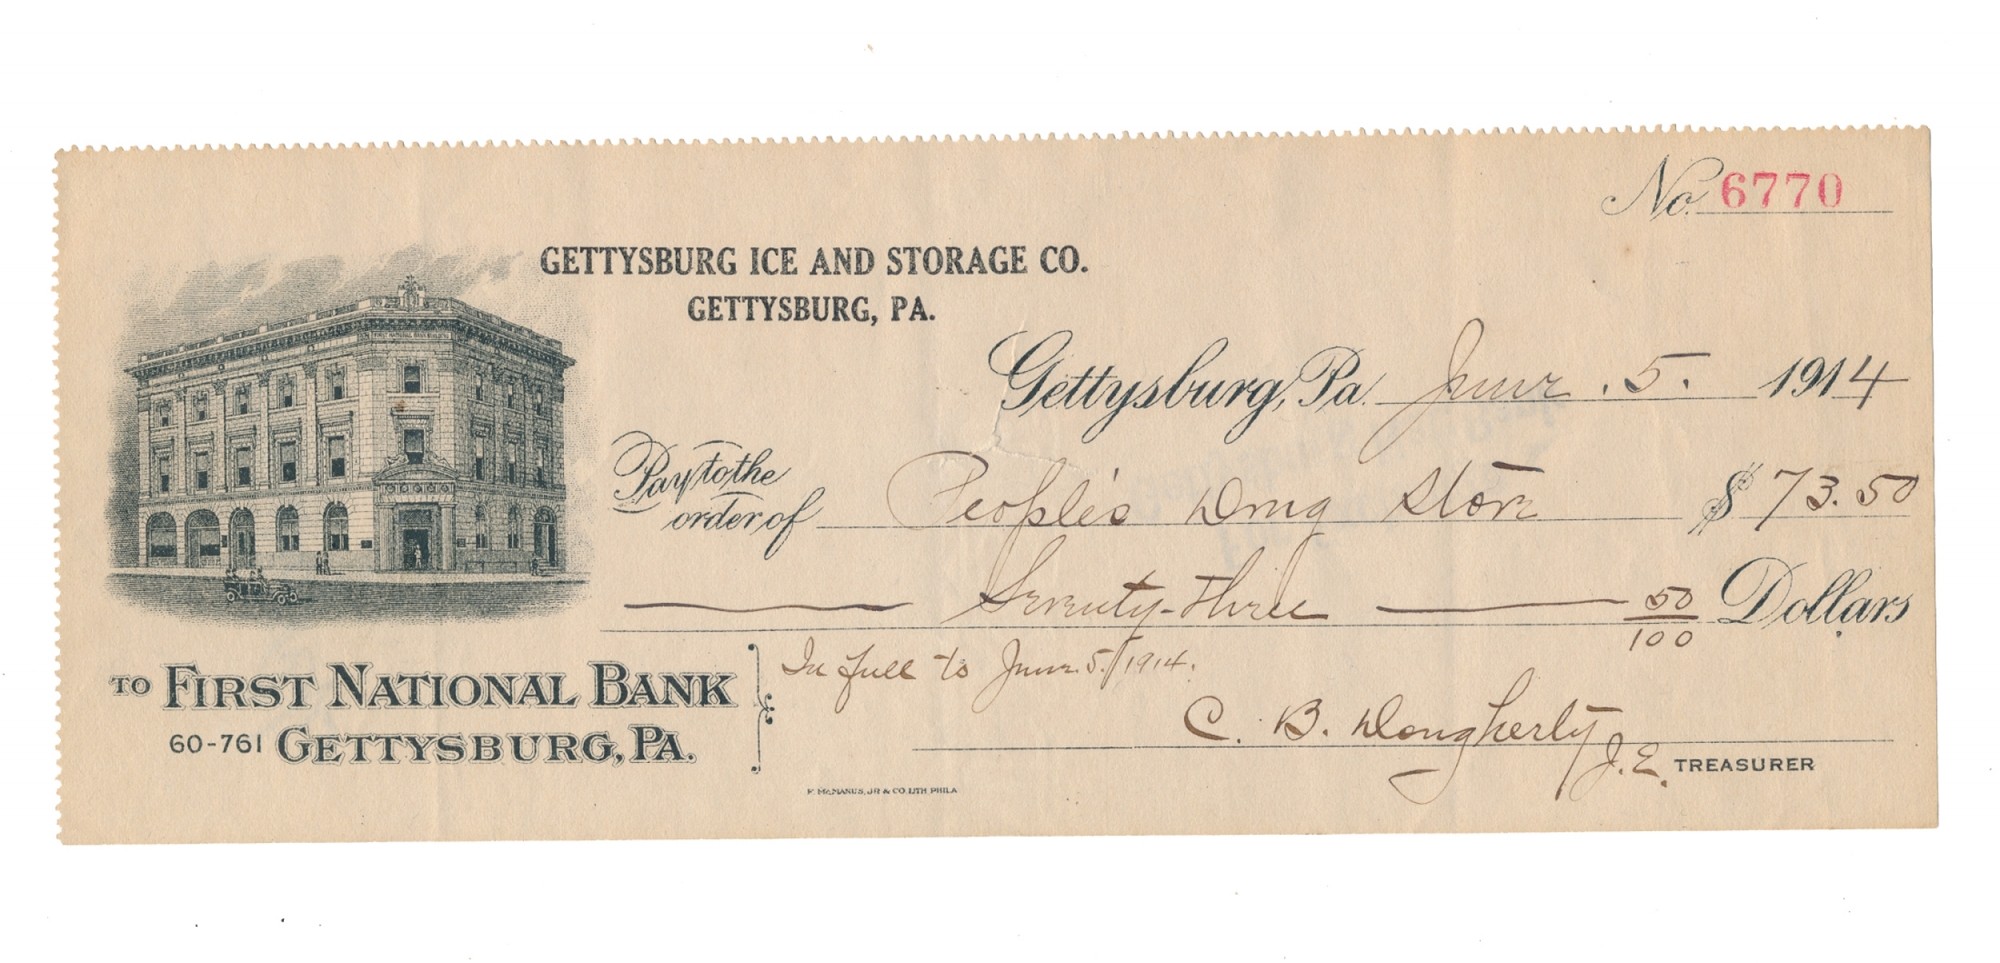 No. 6770
GETTYSBURG ICE AND STORAGE CO.
GETTYSBURG, PA.
Gettysburg, Pa. June. 5. 1914
Pay to the order of People's Drug Store $ 73.50
Seventy-three 50/100 Dollars
In full to June 5, 1914.
TO FIRST NATIONAL BANK
60-761 GETTYSBURG, PA.
C. B. Dougherty
J. E. TREASURER
F. McMANUS, JR & CO. LITH. PHILA